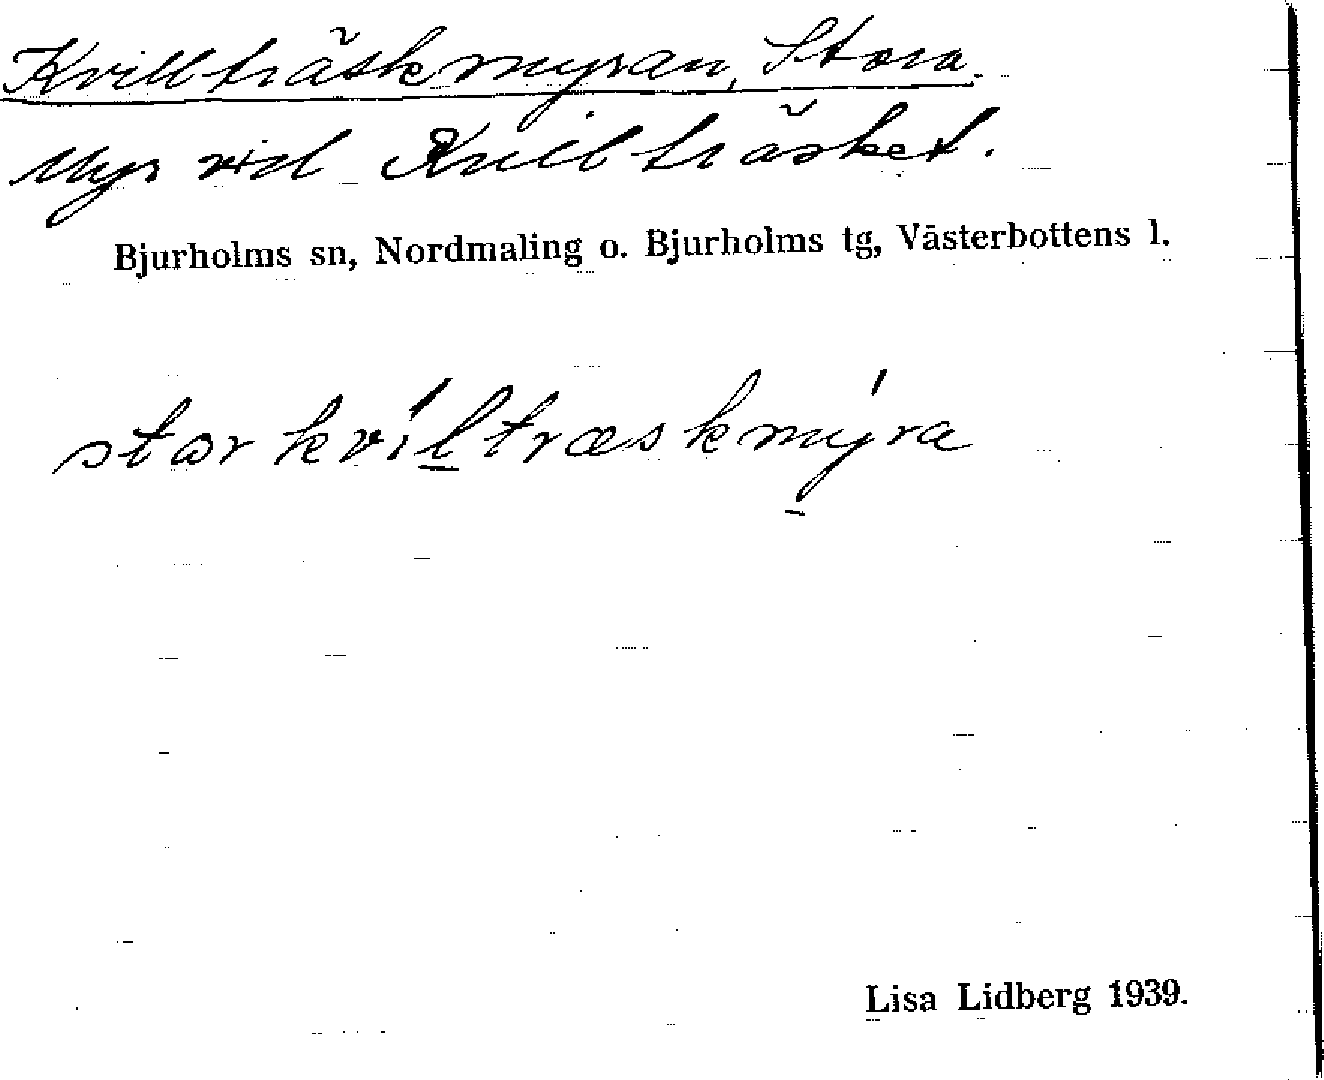 Kvillträskmyran, Stora.
Myr vid Kvillträsket.
Bjurholms sn, Nordmaling o. Bjurholms tg, Västerbottens l.
stor kvíltræskmýra
Lisa Lidberg 1939.